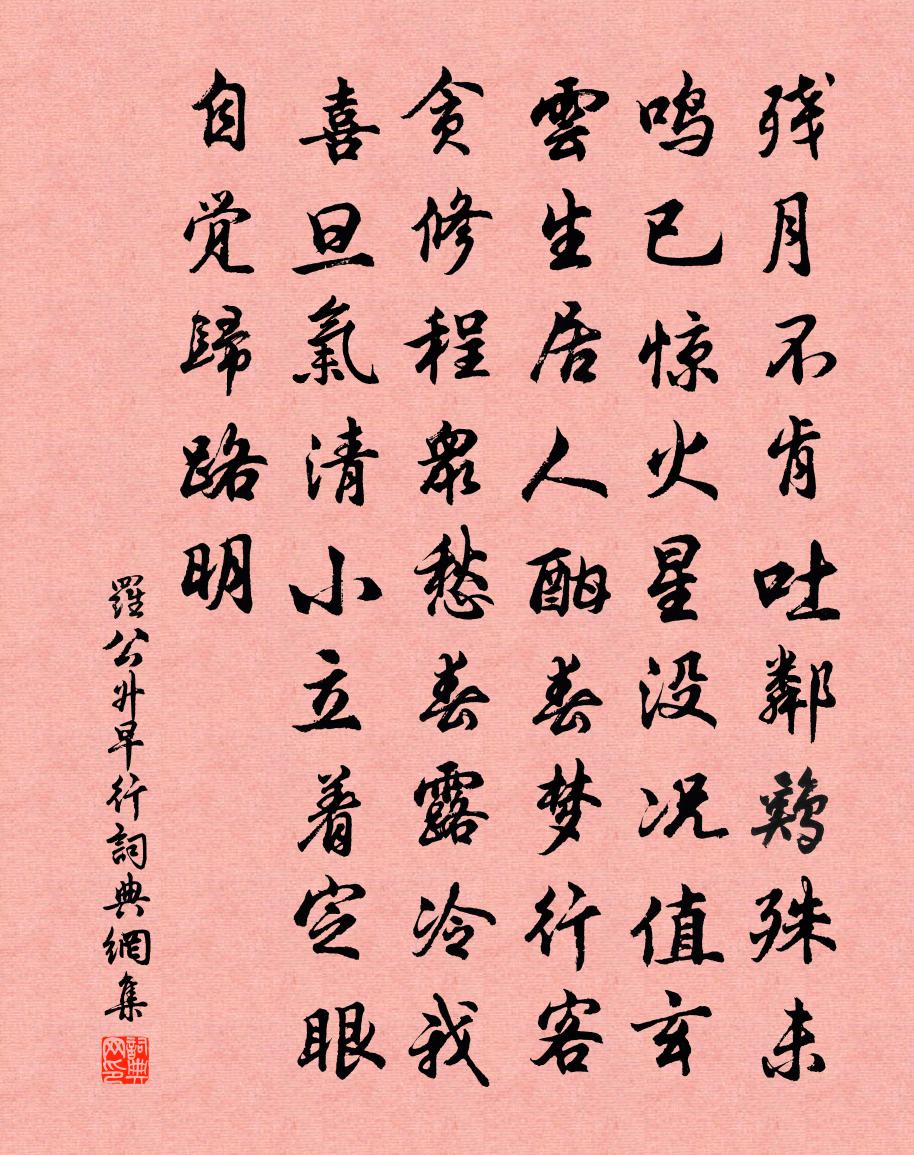 残月不肯吐鄰鷄殊未
鳴已惊火星没况值玄
雲生居人酣春梦行客
貪修程衆愁春露冷我
喜旦氣清小立着定眼
自觉歸路明
羅公升早行詞典網集
詞典网印